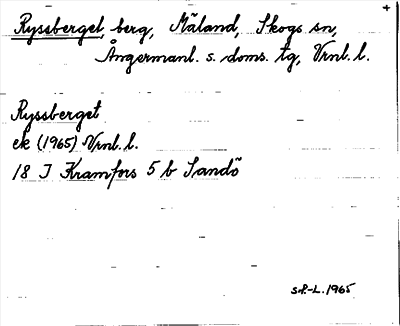 +
Ryssberget, berg, Mäland, Skogs sn,
Ångermanl. s. doms. tg, Vrnl. l.
Ryssberget
ek (1965) Vrnl. l.
18 J Kramfors 5 b Sandö
S.P.-L. 1965